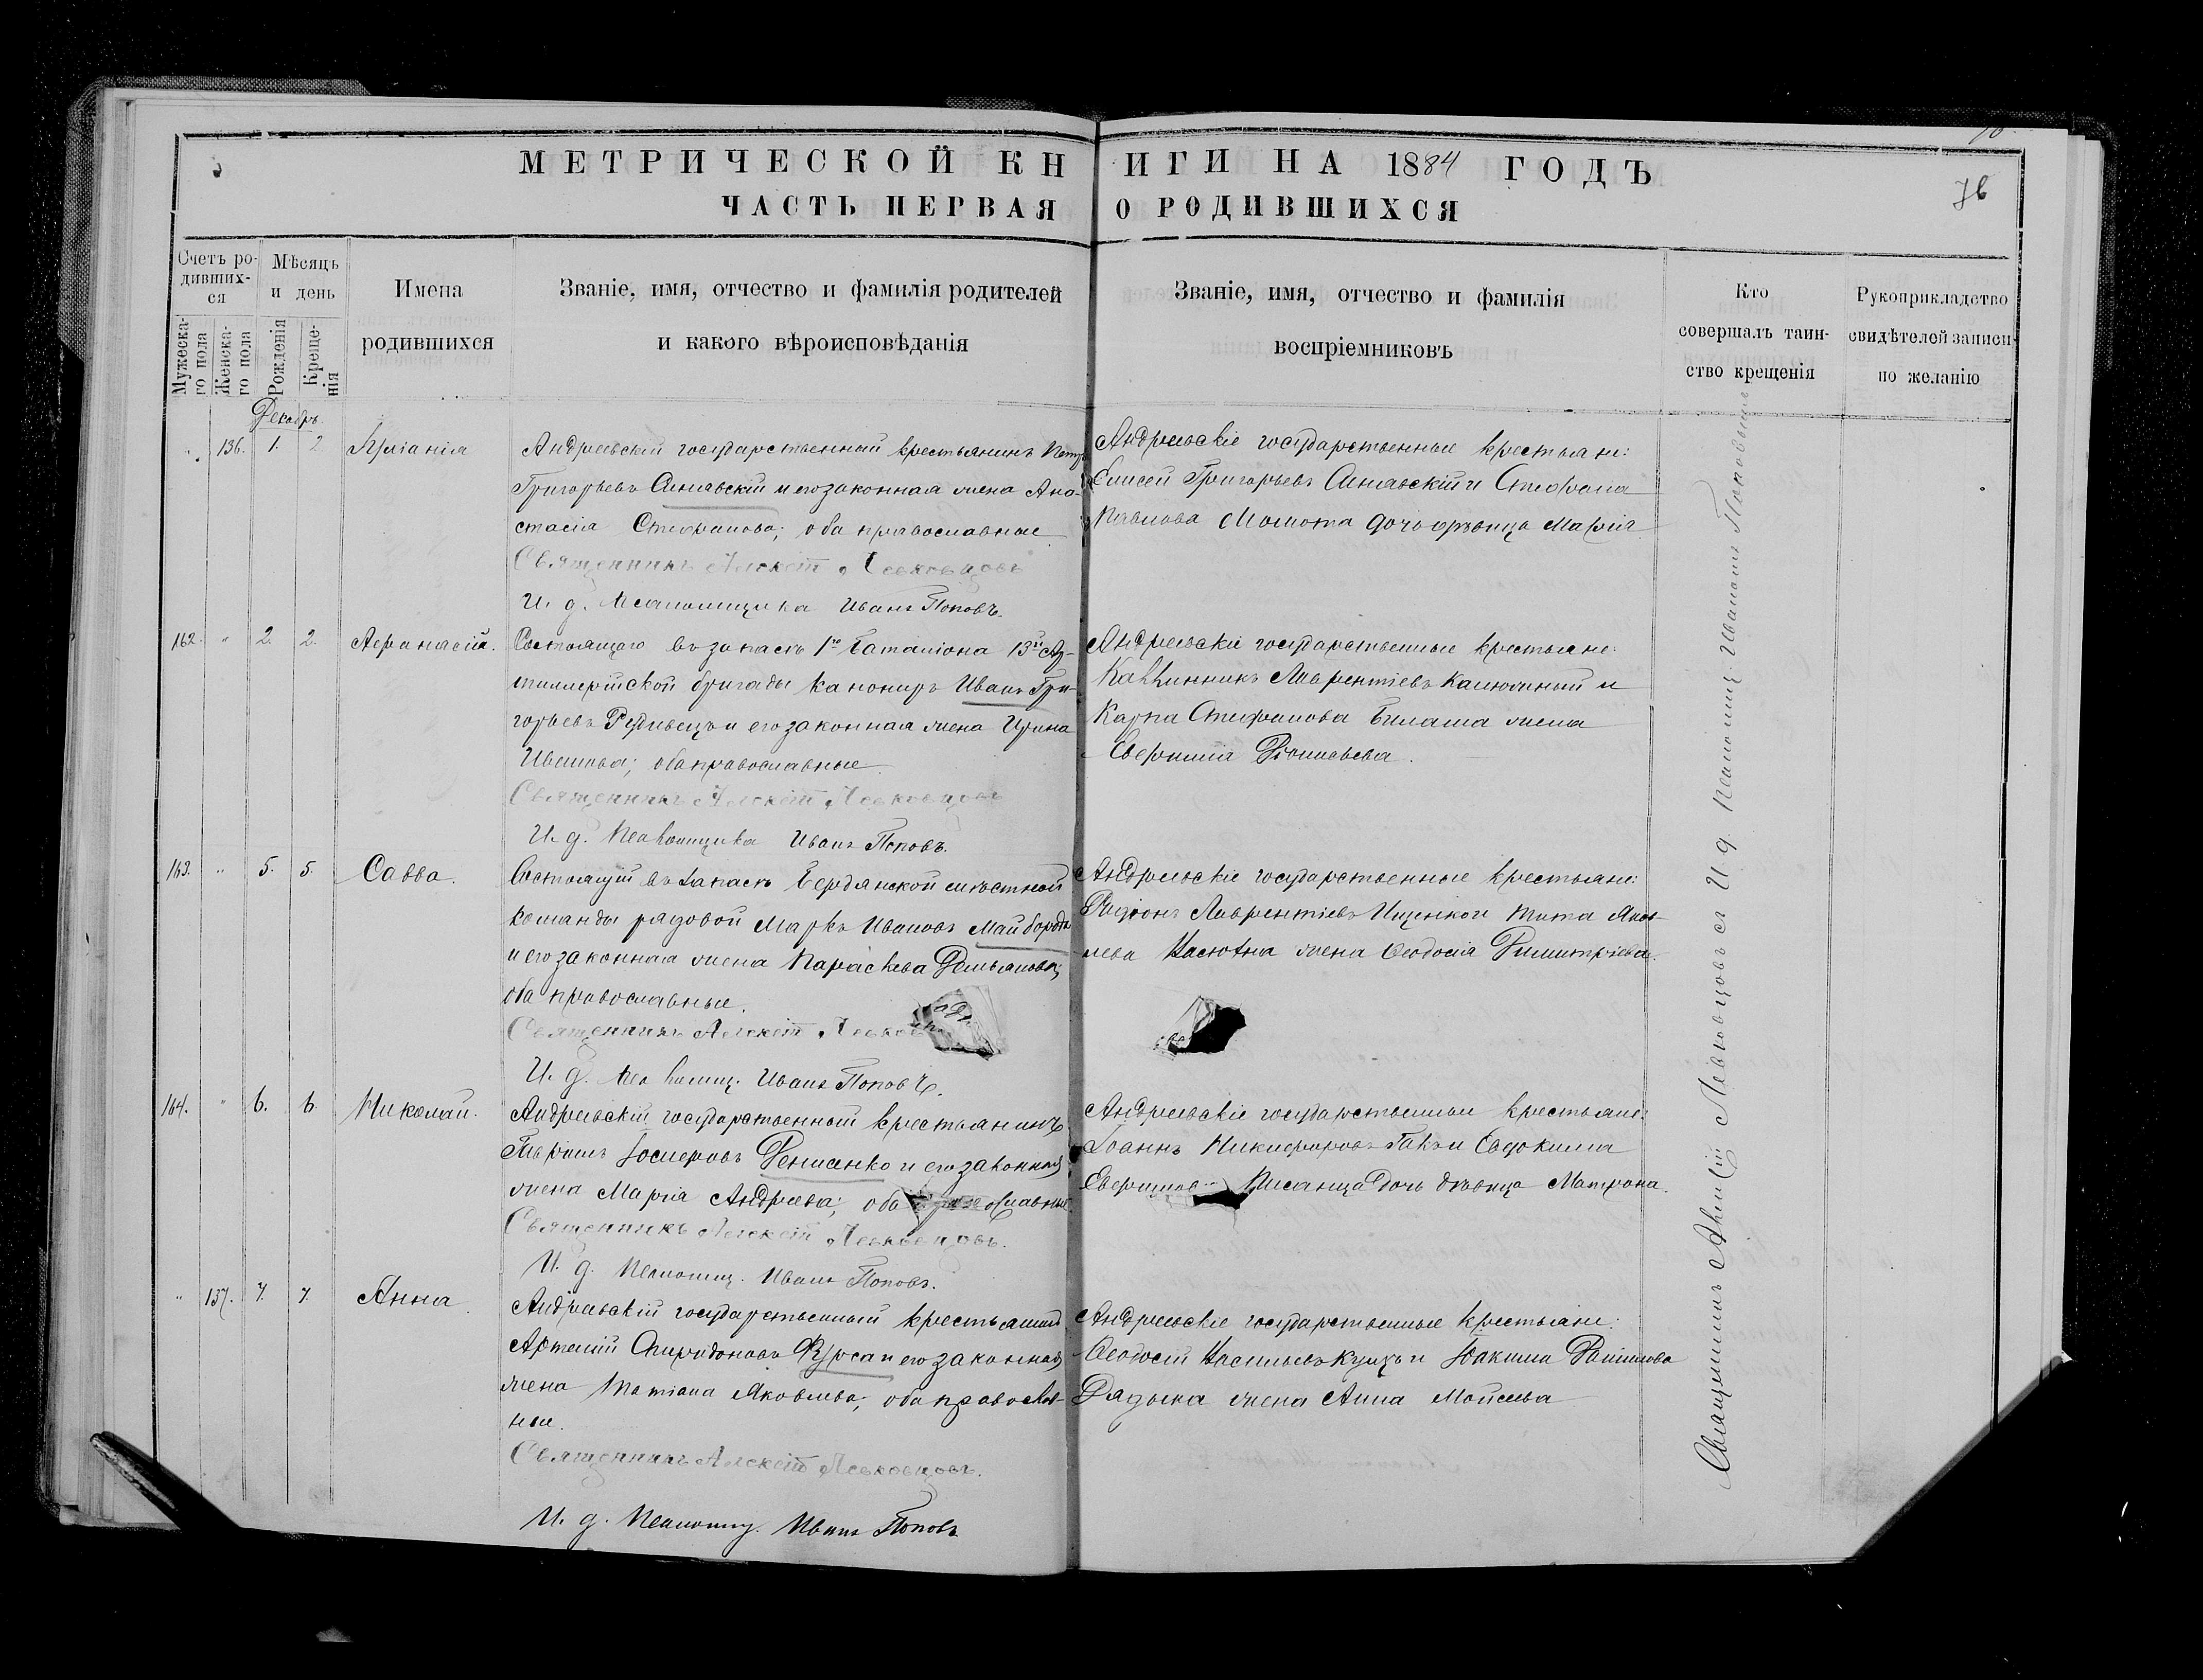 МЕТРИЧЕСКОЙ КНИГИ НА 1884 ГОДЪ
76
ЧАСТЬ ПЕРВАЯ О РОДИВШИХСЯ
Счетъ ро-
дивших-
ся
Мужеска-
го пола
Женска-
го пола
Мѣсяцъ
и день
Рожденія
Креще-
нія
Имена
родившихся
Званіе, имя, отчество и фамилія родителей
и какого вѣроисповѣданія
Званіе, имя, отчество и фамилія
воспріемниковъ
Кто
совершалъ таин-
ство крещенія
Рукоприкладство
свидѣтелей записи
по желанію
Декабрь
136. 1. 2
Андреевскій государственный крестьянинъ Петръ
Григорьевъ Синявскій и его законная жена Ана-
стасія Стефанова; оба православные
Священникъ Алексѣй Левковцовъ
И. д. Псаломщика Иванъ Поповъ.
Андреевскіе государственные крестьяне:
Елисей Григорьевъ Синявскій и Стефана
Павлова дочь дѣвица Марія
162. " 2. 2. Афанасій.
Состоящаго въ запасѣ 1го Баталіона 13й Ар-
тиллерійской бригады канониръ Иванъ Гри-
горьевъ и его законная жена Ирина
Иванова; оба православные.
Священникъ Алексѣй Левковцовъ
И. д. Псаломщика Иванъ Поповъ.
Андреевскіе государственные крестьяне:
Каллинникъ Лаврентіевъ и
Карпа Стефанова Билаша жена
Евфимія
163. " 5. 5. Савва.
Состоящій въ запасѣ Бердянской мѣстной
команды рядовой Маркъ Ивановъ Майборода
и его законная жена Параскева Демьянова;
оба православные.
Священникъ Алексѣй
И. д. Псаломщ. Иванъ Поповъ.
Андреевскіе государственные крестьяне:
Родіонъ Лаврентіевъ Ищенко и Тита Яков-
лева жена Феодосія Димитріева.
164. " 6. 6 Николай.
Андреевскій государственный крестьянинъ
Іосифовъ Денисенко и его законная
жена Марія Андреева; оба православные
Священникъ Алексѣй Левковцовъ.
И. д. Псаломщ. Иванъ Поповъ.
Андреевскіе государственные крестьяне:
Іоаннъ Никифоровъ и Евдокима
Писанца дочь дѣвица Матрона.
" 137. 7. 7. Анна
Андреевскій государственный крестьянинъ
Артемій Спиридоновъ Фурса и его законная
жена Татіана Яковлева; оба православ-
ные.
Священникъ Алексѣй Левковцовъ.
И. д. Псаломщ. Иванъ Поповъ
Андреевскіе государственные крестьяне:
Феодосій Васильевъ и Іоакима Даниилова
жена Анна Моисеева
Священникъ Алексѣй Левковцовъ съ И. д. Псаломщ. Иваномъ Поповымъ